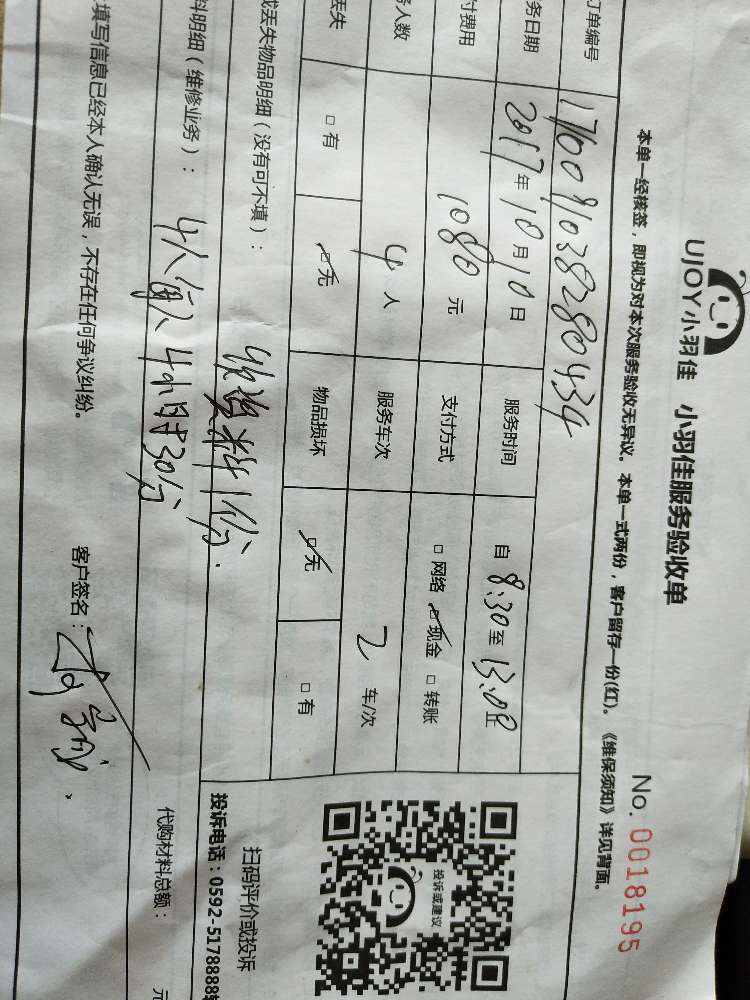 UJOY小羽佳 小羽佳服务验收单
No. 0018195
本单一经核签，即视为对本次服务验收无异议。本单一式两份，客户留存一份(红)。《维保须知》详见背面。
订单编号 1760091038280434
务日期 2017年10月10日 服务时间 自 8:30 至 13:00 止
付费用 1080元 支付方式 □网络 ☑现金 □转账
务人数 4人 服务车次 2车/次
丢失 □有 ☑无 物品损坏 ☑无 □有
或丢失物品明细（没有可不填）：
收资料1份.
料明细（维修业务）： 4人 4小时30分
代购材料总额： 元
填写信息已经本人确认无误，不存在任何争议纠纷。
客户签名：
投诉或建议
扫码评价或投诉
投诉电话：0592-5178888转